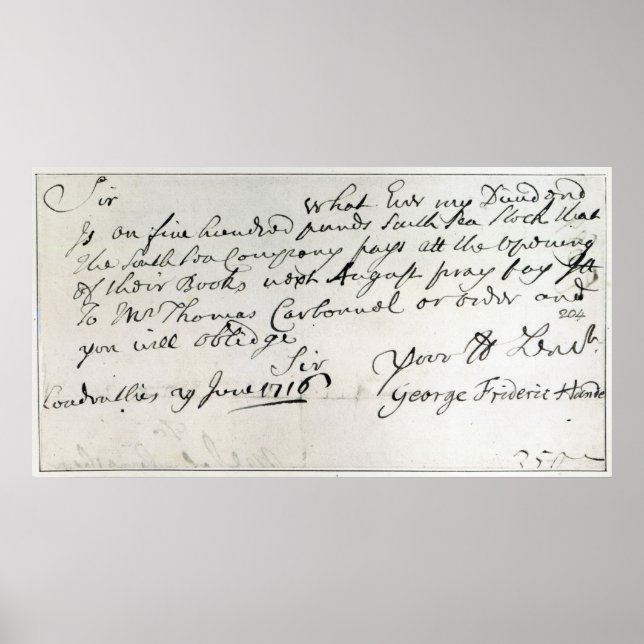 Sir what Ever my Diuidend
Is on five hundred pounds South Sea Stock that
The South Sea Company pays att the opening
of their Books next August pray pay Itt
To Mr Thomas Carbonnel or order and
204
you will oblidge
Sir Your
London this 29 June 1716
George Frideric Hande